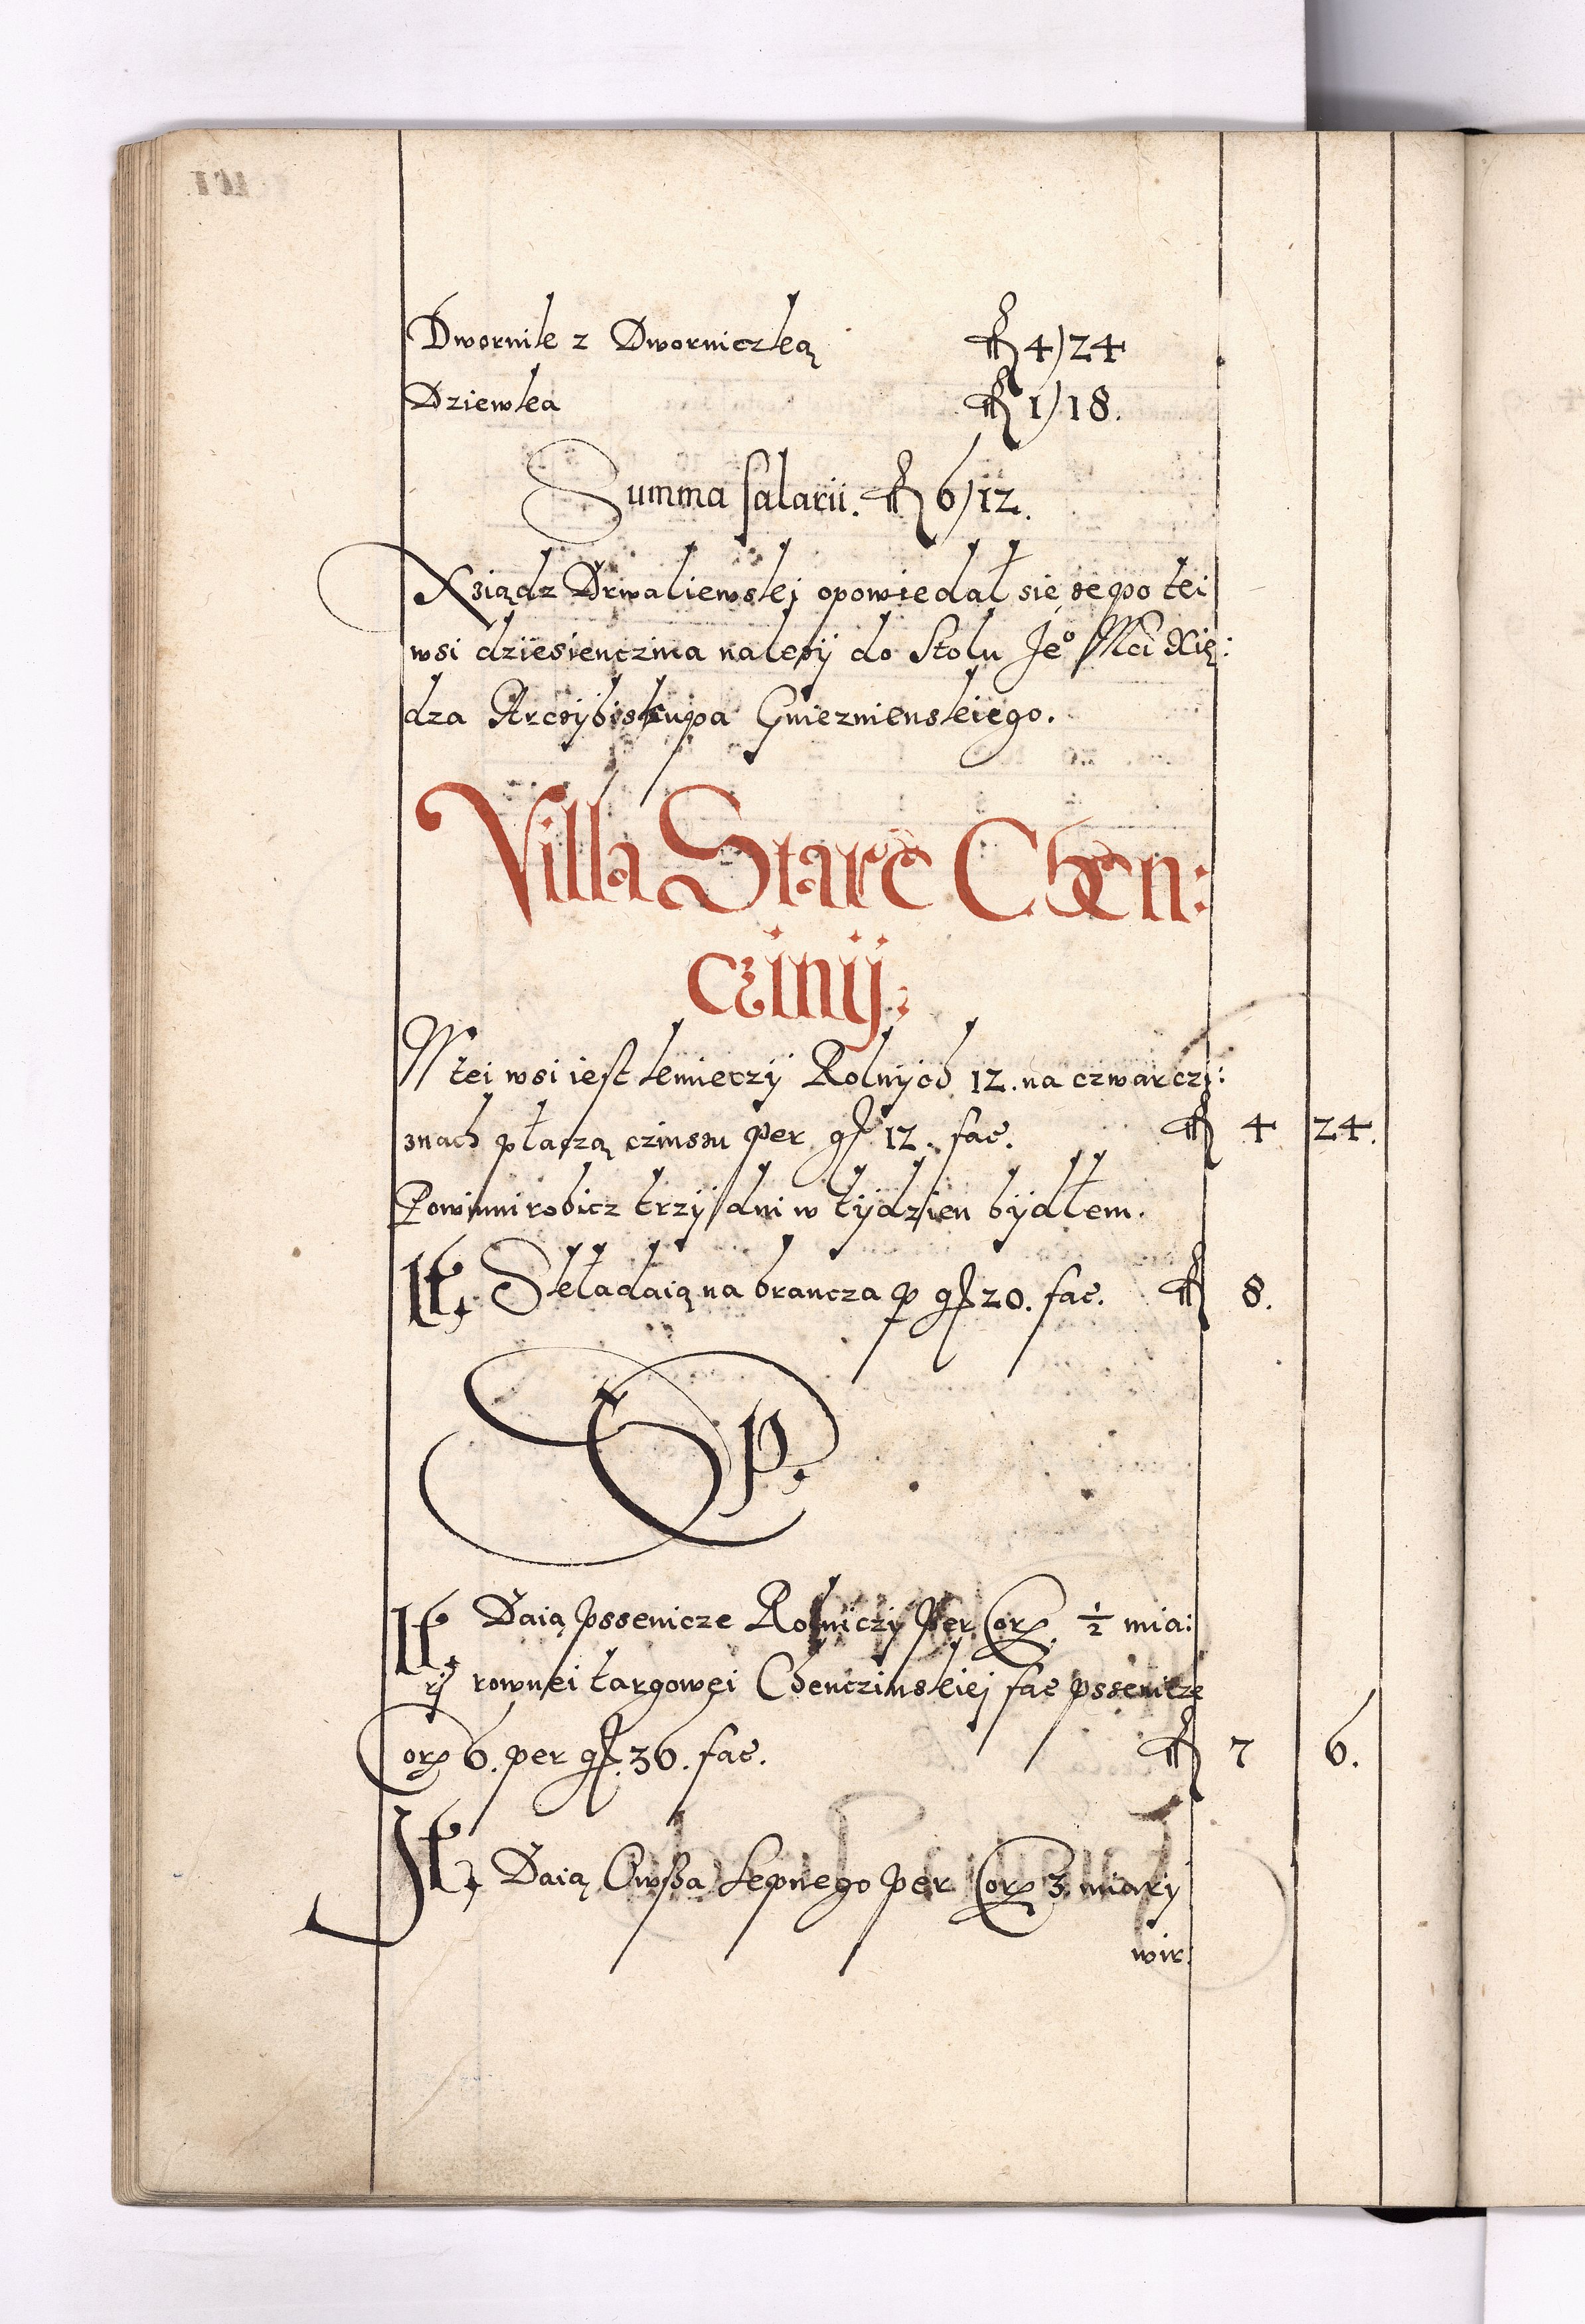 Dwornik z Dworniczką fl 4/24
Dziewka fl 1/18.
Summa salarii. fl 6/12.
Xsiądz Drwaliewskj opowiedał się że po tei
wsi dziesienczina należÿ do Stolu Je° Mći Xię:
dza ArczÿbisKupa Gnieznienskiego.
Villa Stare Chen:
czinÿ.
W tei wsi iest kmieczÿ Rolnÿch 12. na czwarczi:
znach płaczą czinszu per gr 12. fac. fl 4 24.
Powinni robicz trzÿ dni w tÿdzien bÿdłem.
It, Składaią na brancza p gr 20. fac. fl 8.
SP.
It. Daią pssenicze Rolniczÿ per Cor. ½ mia:
rÿ rownei targowei Chencziuskiej fac pssenicze
Cor 6. per gr. 36. fac. fl 7 6.
It, Daią Owsza sepnego per Cor 3 miarÿ
wir: